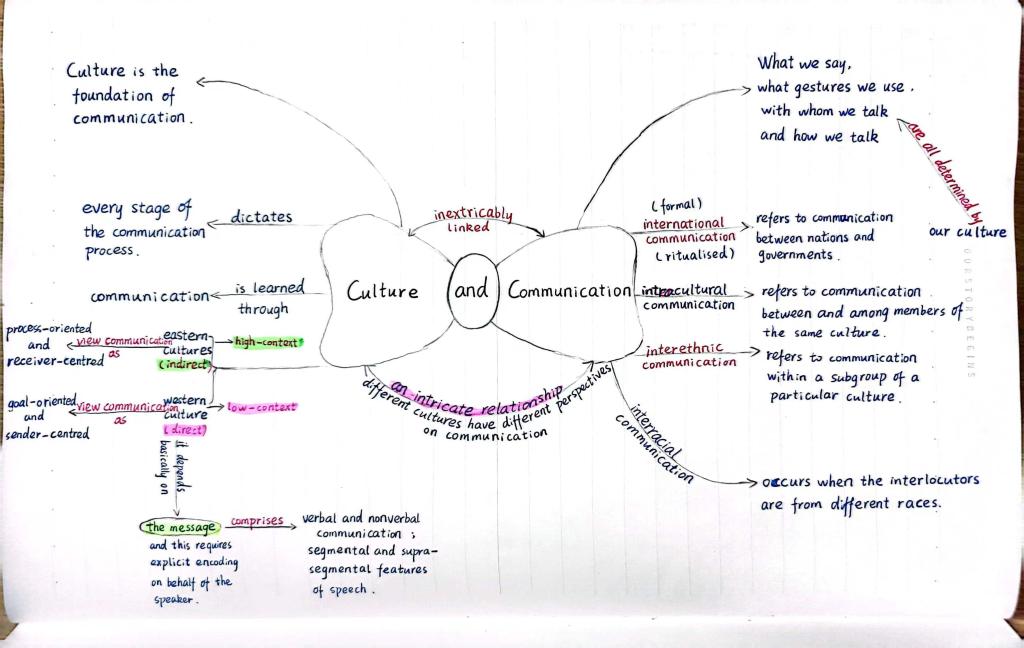 Culture is the
foundation of
communication.
What we say,
what gestures we use,
with whom we talk
and how we talk
are all determined by
our culture
every stage of
the communication
process.
dictates
inextricably
linked
(formal)
international
communication
(ritualised)
refers to communication
between nations and
governments.
Culture
and
Communication
communication
is learned
through
intracultural
communication
refers to communication
between and among members of
the same culture.
process-oriented
and
receiver-centred
view communication
as
eastern
cultures
(indirect)
high-context
interethnic
communication
refers to communication
within a subgroup of a
particular culture.
goal-oriented
and
sender-centred
view communication
as
western
culture
(direct)
low-context
an intricate relationship
different cultures have different perspectives
on communication
interracial
communication
occurs when the interlocutors
are from different races.
it depends
basically on
the message
comprises
verbal and nonverbal
communication;
segmental and supra-
segmental features
of speech.
and this requires
explicit encoding
on behalf of the
speaker.
OURSTORYBEGINS